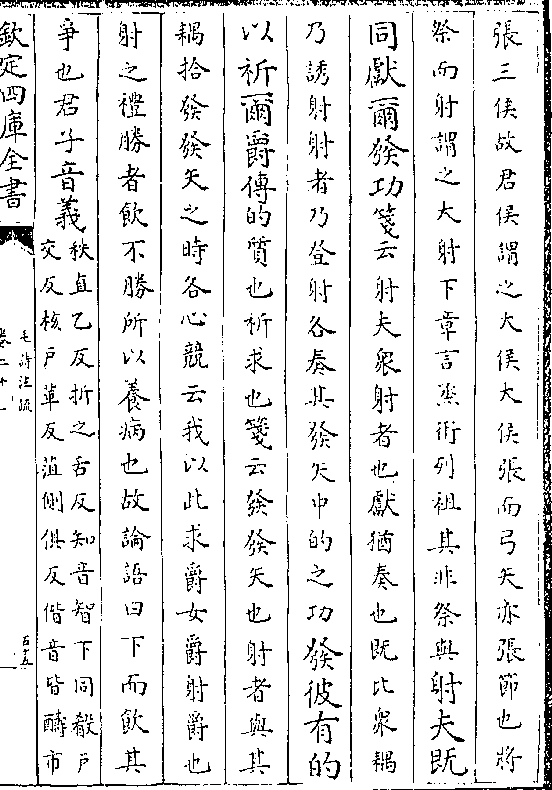 張三侯故君侯謂之大侯大侯張而弓矢亦張節也將
祭而射謂之大射下章言烝衎列祖其非祭與射夫既
同獻爾發功箋云射夫衆射者也獻猶奏也既比衆耦
乃誘射射者乃登射各奏其發矢中的之功發彼有的
以祈爾爵傳的質也祈求也箋云發發矢也射者與其
耦拾發發矢之時各心競云我以此求爵女爵射爵也
射之禮勝者飲不勝所以養病也故論語曰下而飲其
爭也君子音義
秩直乙反折之舌反知音智下同殽戶
交反核戶革反菹側俱反偕音皆醻市
欽定四庫全書
毛詩注疏
卷二十一